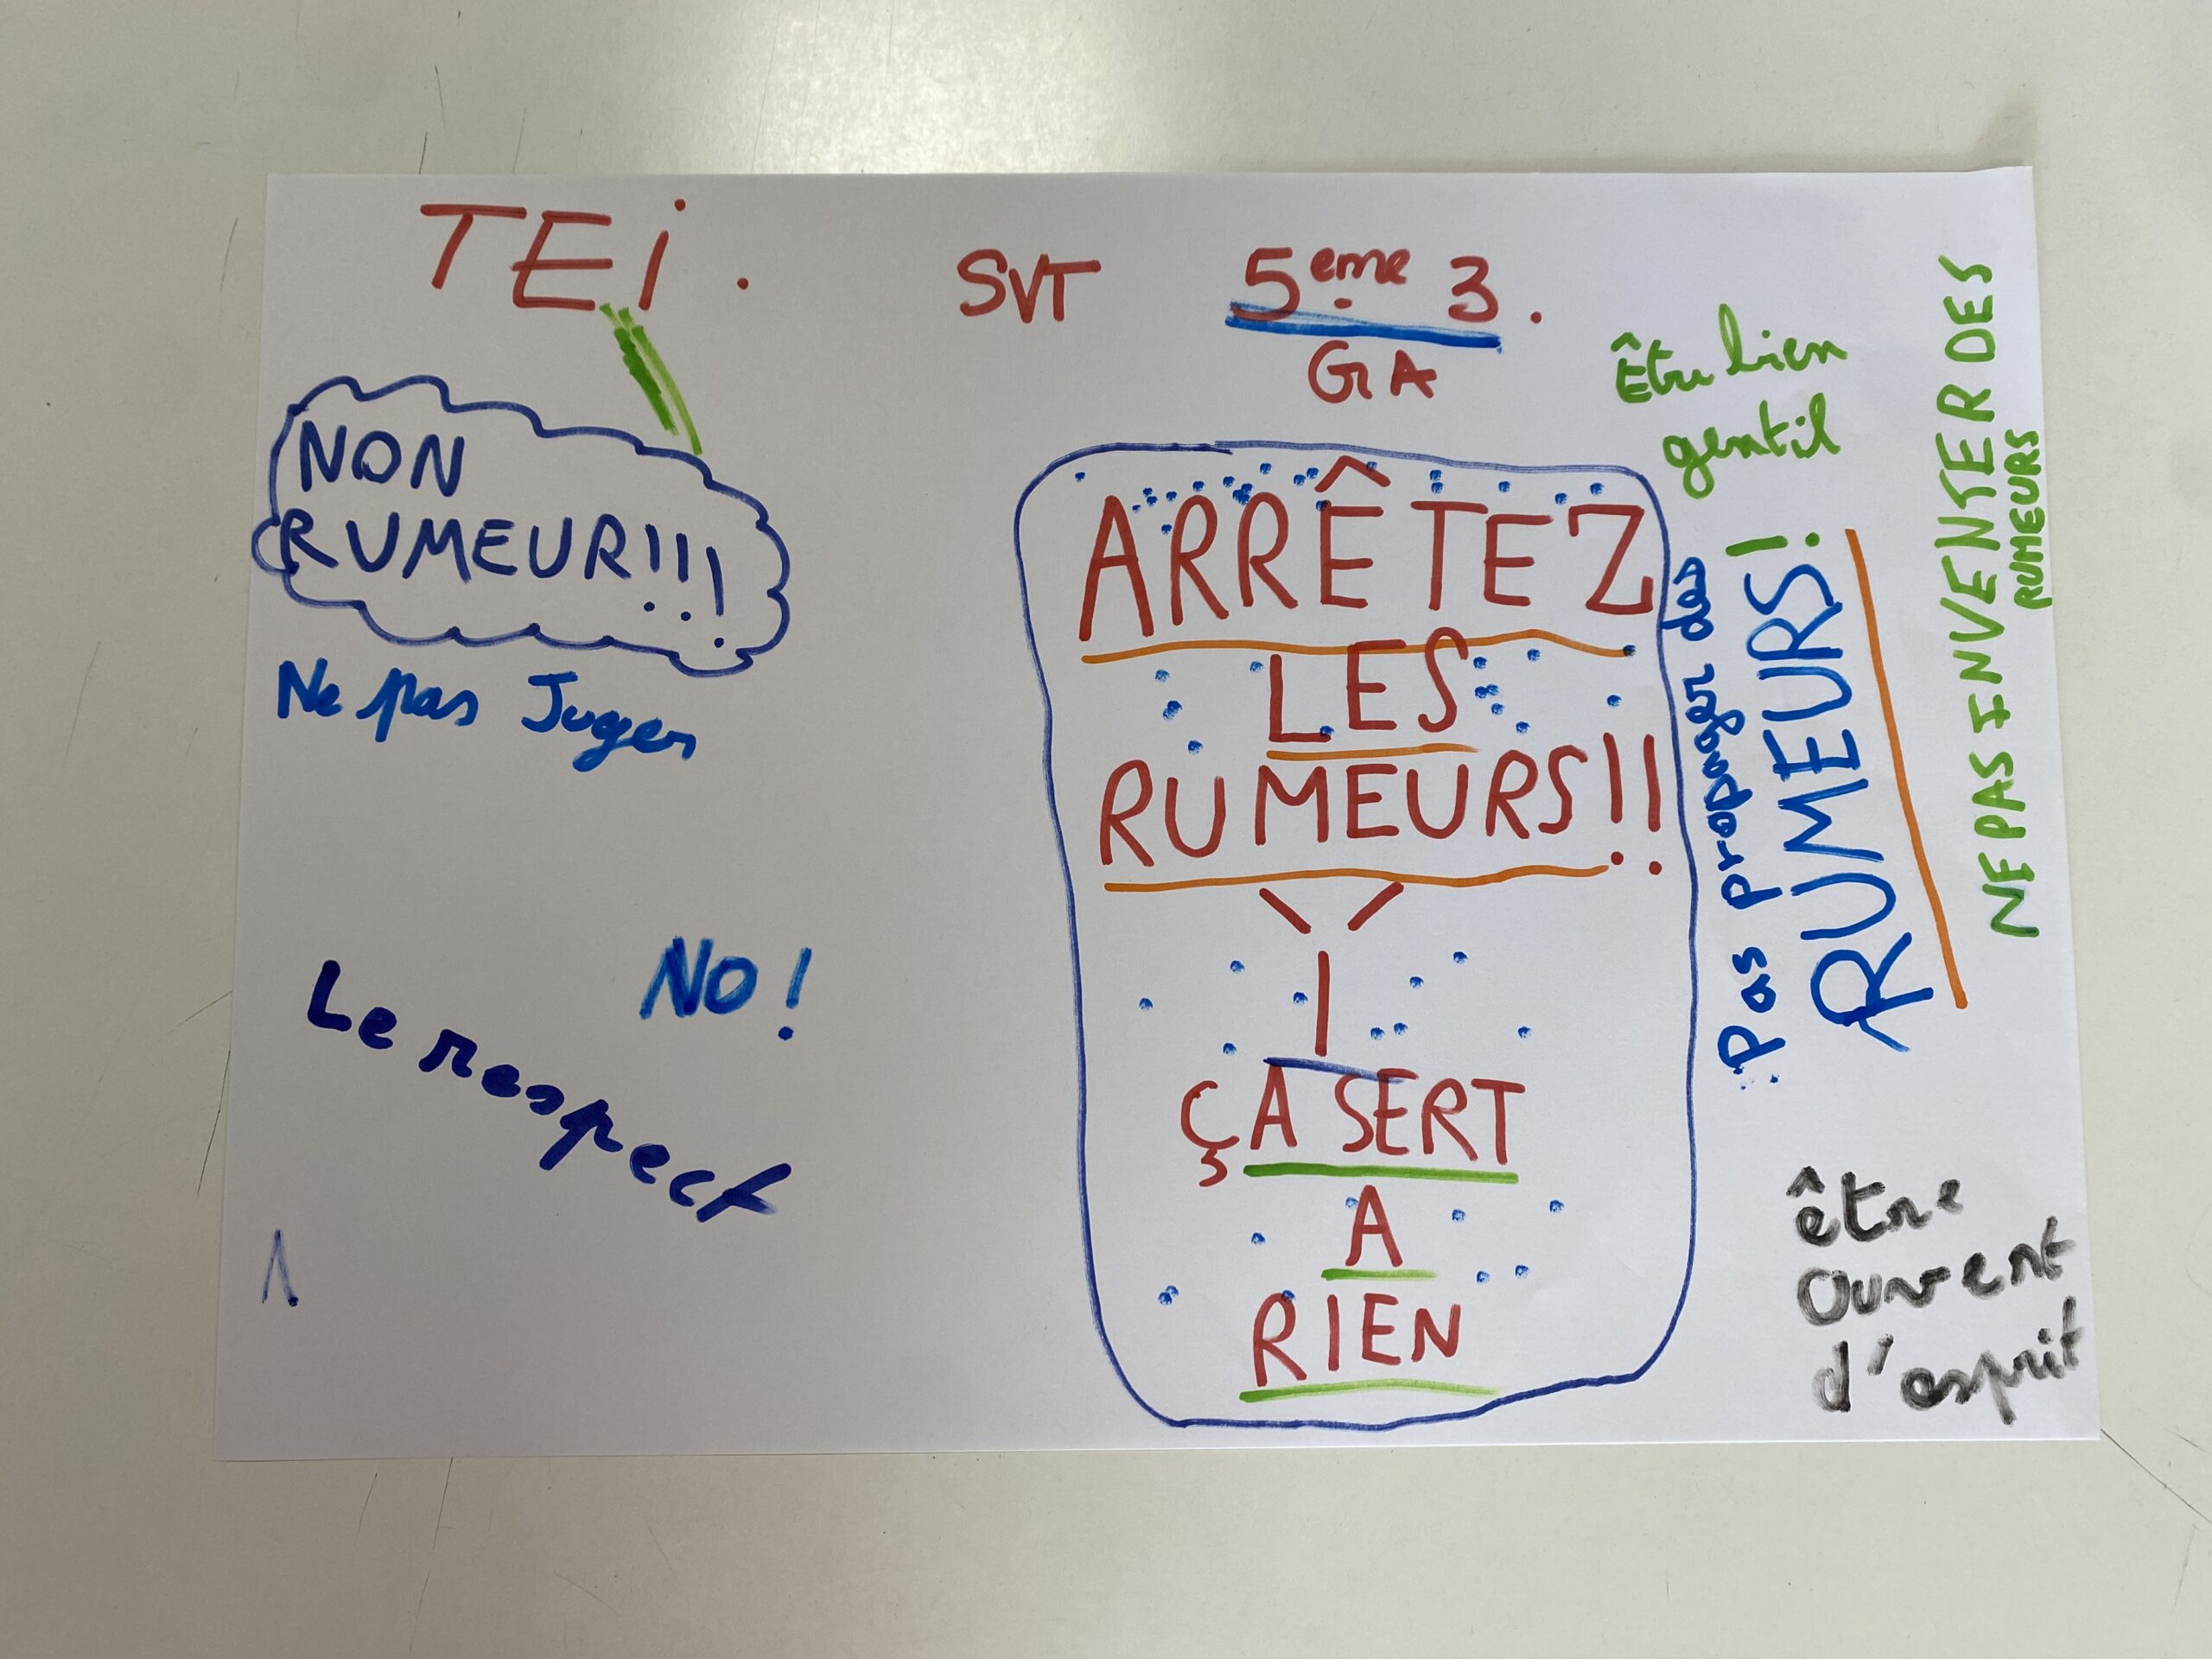 TEi.
SVT
5eme 3.
GA
NON
RUMEUR!!!
Ne pas Juger
NO!
Le respect
ARRÊTEZ
LES
RUMEURS!!
ÇA SERT
A
RIEN
Être bien
gentil
Pas propager des
RUMEURS!
!
NE PAS INVENTER DES
RUMEURS
être
ouvert
d'esprit